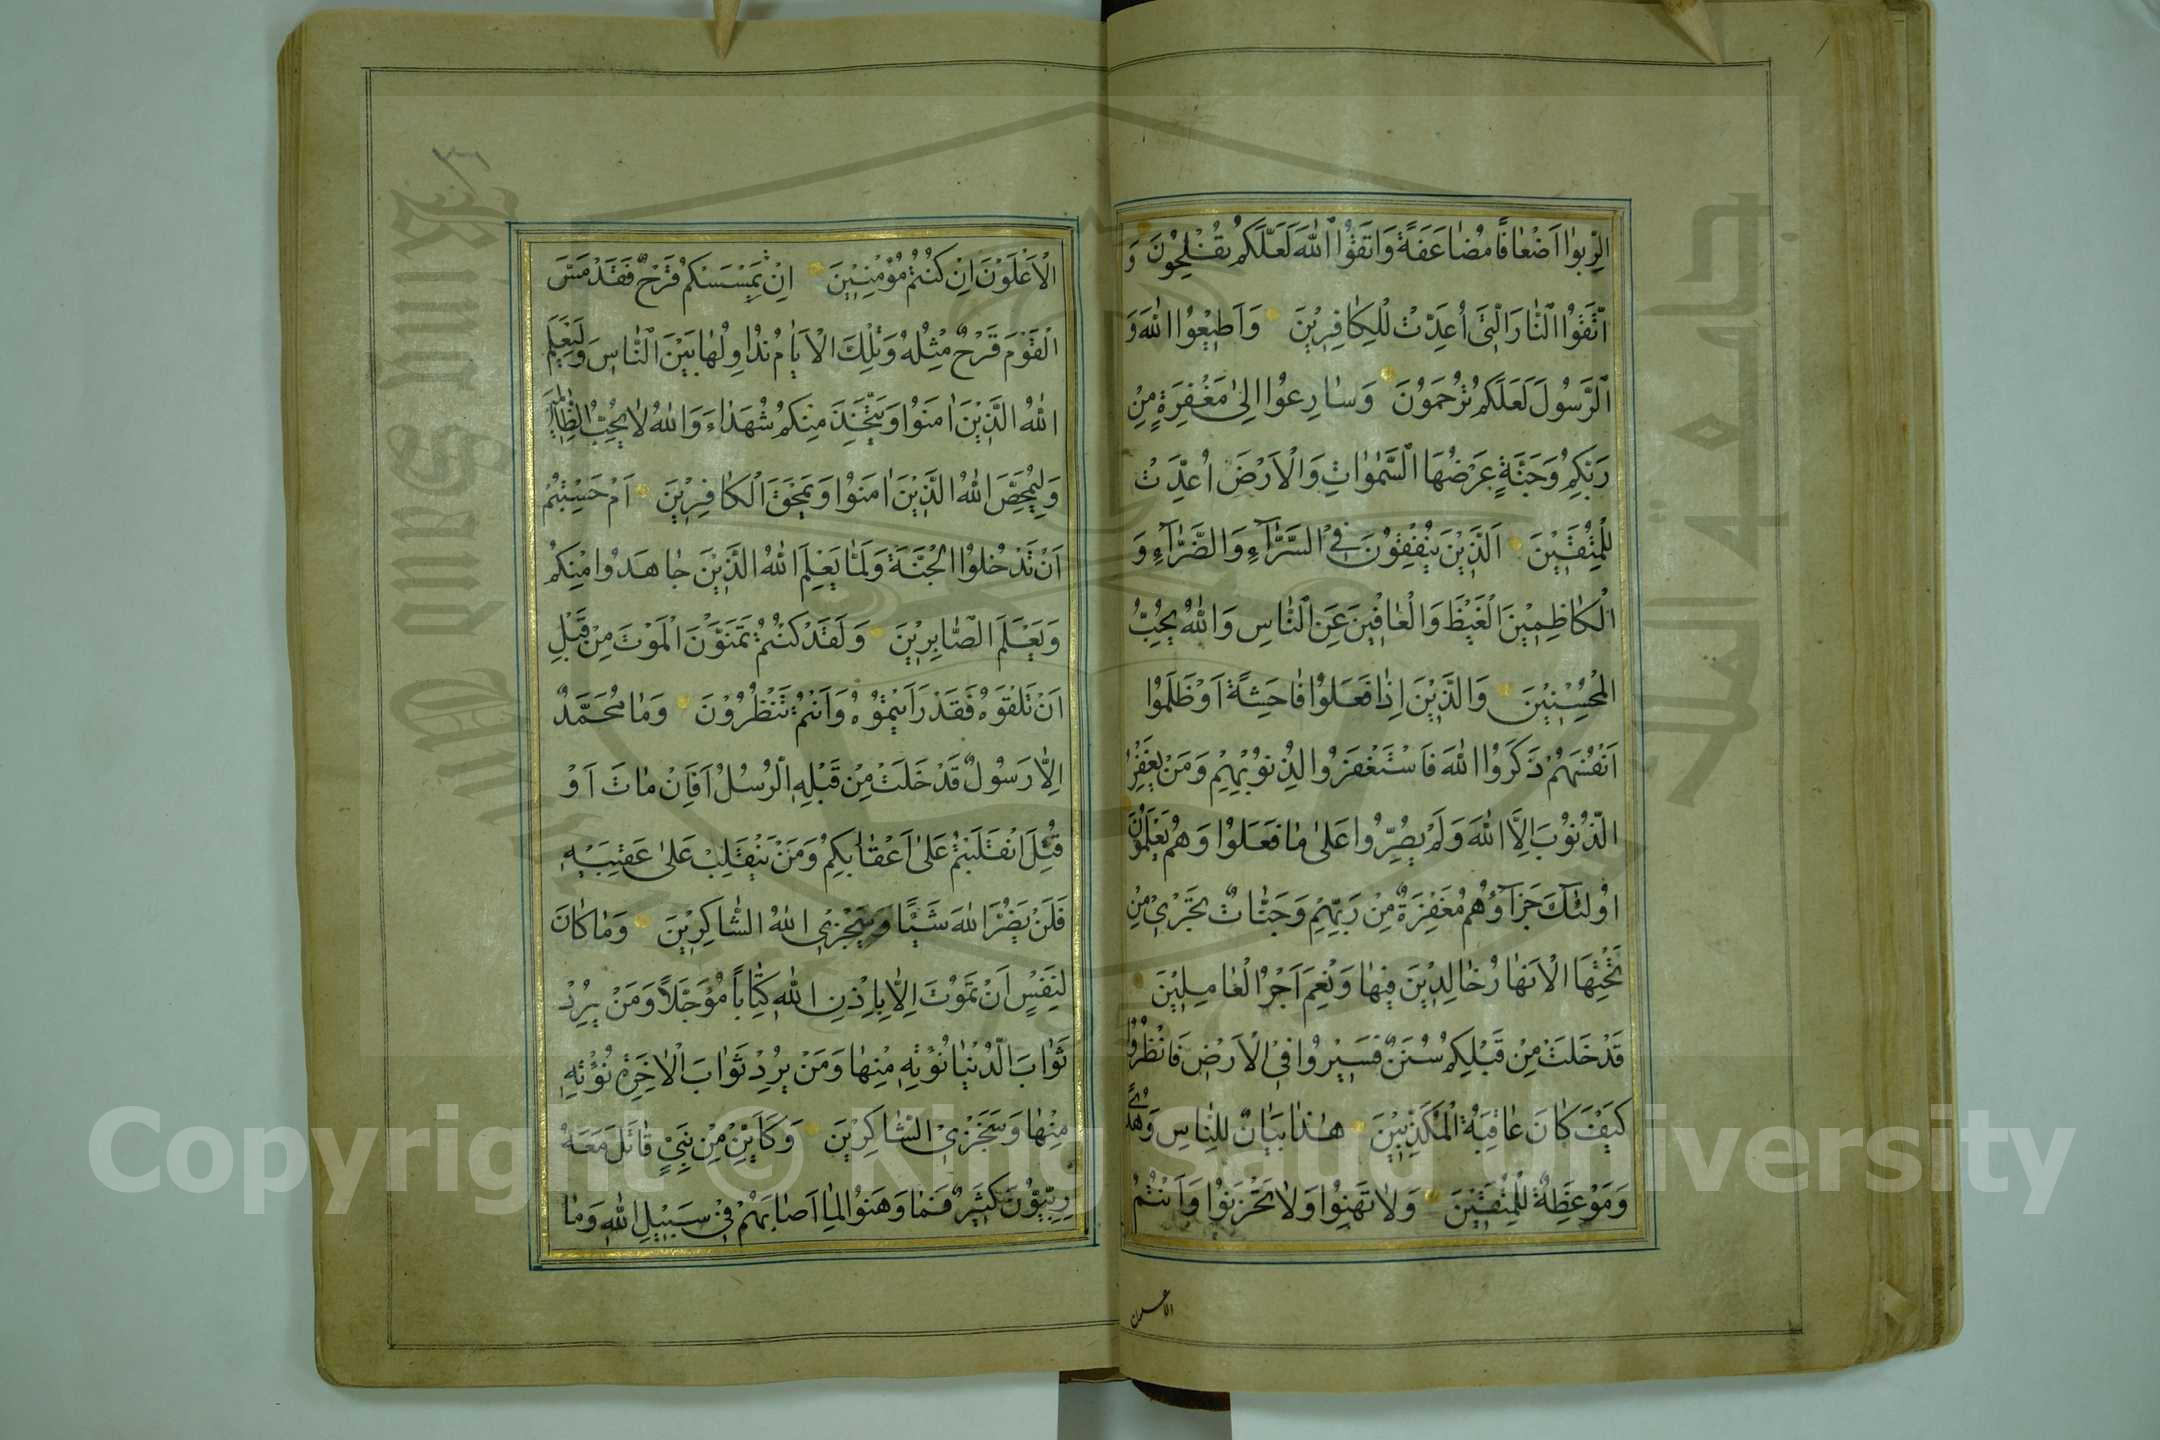 الرِّبٰوا اَضْعَافًا مُضَاعَفَةً وَاتَّقُوا اللّٰهَ لَعَلَّكُمْ تُفْلِحُونَ وَ
اتَّقُوا النَّارَ الَّتِي اُعِدَّتْ لِلْكَافِرِينَ وَاَطِيعُوا اللّٰهَ وَ
الرَّسُولَ لَعَلَّكُمْ تُرْحَمُونَ وَسَارِعُوا اِلٰى مَغْفِرَةٍ مِنْ
رَبِّكُمْ وَجَنَّةٍ عَرْضُهَا السَّمٰوَاتِ وَالْاَرْضَ اُعِدَّتْ
لِلْمُتَّقِينَ اَلَّذِينَ يُنْفِقُونَ فِي السَّرَّآءِ وَالضَّرَّآءِ وَ
الْكَاظِمِينَ الْغَيْظَ وَالْعَافِينَ عَنِ النَّاسِ وَاللّٰهُ يُحِبُّ
الْمُحْسِنِينَ وَالَّذِينَ اِذَا فَعَلُوا فَاحِشَةً اَوْ ظَلَمُوا
اَنْفُسَهُمْ ذَكَرُوا اللّٰهَ فَاسْتَغْفَرُوا لِذُنُوبِهِمْ وَمَنْ يَغْفِرُ
الذُّنُوبَ اِلَّا اللّٰهَ وَلَمْ يُصِرُّوا عَلٰى مَا فَعَلُوا وَهُمْ يَعْلَمُونَ
اُولٰئِكَ جَزَآؤُهُمْ مَغْفِرَةٌ مِنْ رَبِّهِمْ وَجَنَّاتٌ تَجْرِي مِنْ
تَحْتِهَا الْاَنْهَارُ خَالِدِينَ فِيهَا وَنِعْمَ اَجْرُ الْعَامِلِينَ
قَدْ خَلَتْ مِنْ قَبْلِكُمْ سُنَنٌ فَسِيرُوا فِي الْاَرْضِ فَانْظُرُوا
كَيْفَ كَانَ عَاقِبَةُ الْمُكَذِّبِينَ هٰذَا بَيَانٌ لِلنَّاسِ وَهُدًى
وَمَوْعِظَةٌ لِلْمُتَّقِينَ وَلَا تَهِنُوا وَلَا تَحْزَنُوا وَاَنْتُمُ
الاعلون
الْاَعْلَوْنَ اِنْ كُنْتُمْ مُؤْمِنِينَ اِنْ يَمْسَسْكُمْ قَرْحٌ فَقَدْ مَسَّ
الْقَوْمَ قَرْحٌ مِثْلُهُ وَتِلْكَ الْاَيَّامُ نُدَاوِلُهَا بَيْنَ النَّاسِ وَلِيَعْلَمَ
اللّٰهُ الَّذِينَ اٰمَنُوا وَيَتَّخِذَ مِنْكُمْ شُهَدَاءَ وَاللّٰهُ لَا يُحِبُّ الظَّالِمِينَ
وَلِيُمَحِّصَ اللّٰهُ الَّذِينَ اٰمَنُوا وَيَمْحَقَ الْكَافِرِينَ اَمْ حَسِبْتُمْ
اَنْ تَدْخُلُوا الْجَنَّةَ وَلَمَّا يَعْلَمِ اللّٰهُ الَّذِينَ جَاهَدُوا مِنْكُمْ
وَيَعْلَمَ الصَّابِرِينَ وَلَقَدْ كُنْتُمْ تَمَنَّوْنَ الْمَوْتَ مِنْ قَبْلِ
اَنْ تَلْقَوْهُ فَقَدْ رَاَيْتُمُوهُ وَاَنْتُمْ تَنْظُرُونَ وَمَا مُحَمَّدٌ
اِلَّا رَسُولٌ قَدْ خَلَتْ مِنْ قَبْلِهِ الرُّسُلُ اَفَاِنْ مَاتَ اَوْ
قُتِلَ انْقَلَبْتُمْ عَلٰى اَعْقَابِكُمْ وَمَنْ يَنْقَلِبْ عَلٰى عَقِبَيْهِ
فَلَنْ يَضُرَّ اللّٰهَ شَيْئًا وَسَيَجْزِي اللّٰهُ الشَّاكِرِينَ وَمَا كَانَ
لِنَفْسٍ اَنْ تَمُوتَ اِلَّا بِاِذْنِ اللّٰهِ كِتَابًا مُؤَجَّلًا وَمَنْ يُرِدْ
ثَوَابَ الدُّنْيَا نُؤْتِهِ مِنْهَا وَمَنْ يُرِدْ ثَوَابَ الْاٰخِرَةِ نُؤْتِهِ
مِنْهَا وَسَنَجْزِي الشَّاكِرِينَ وَكَاَيِّنْ مِنْ نَبِيٍّ قَاتَلَ مَعَهُ
رِبِّيُّونَ كَثِيرٌ فَمَا وَهَنُوا لِمَا اَصَابَهُمْ فِي سَبِيلِ اللّٰهِ وَمَا
Copyright © King Saud University